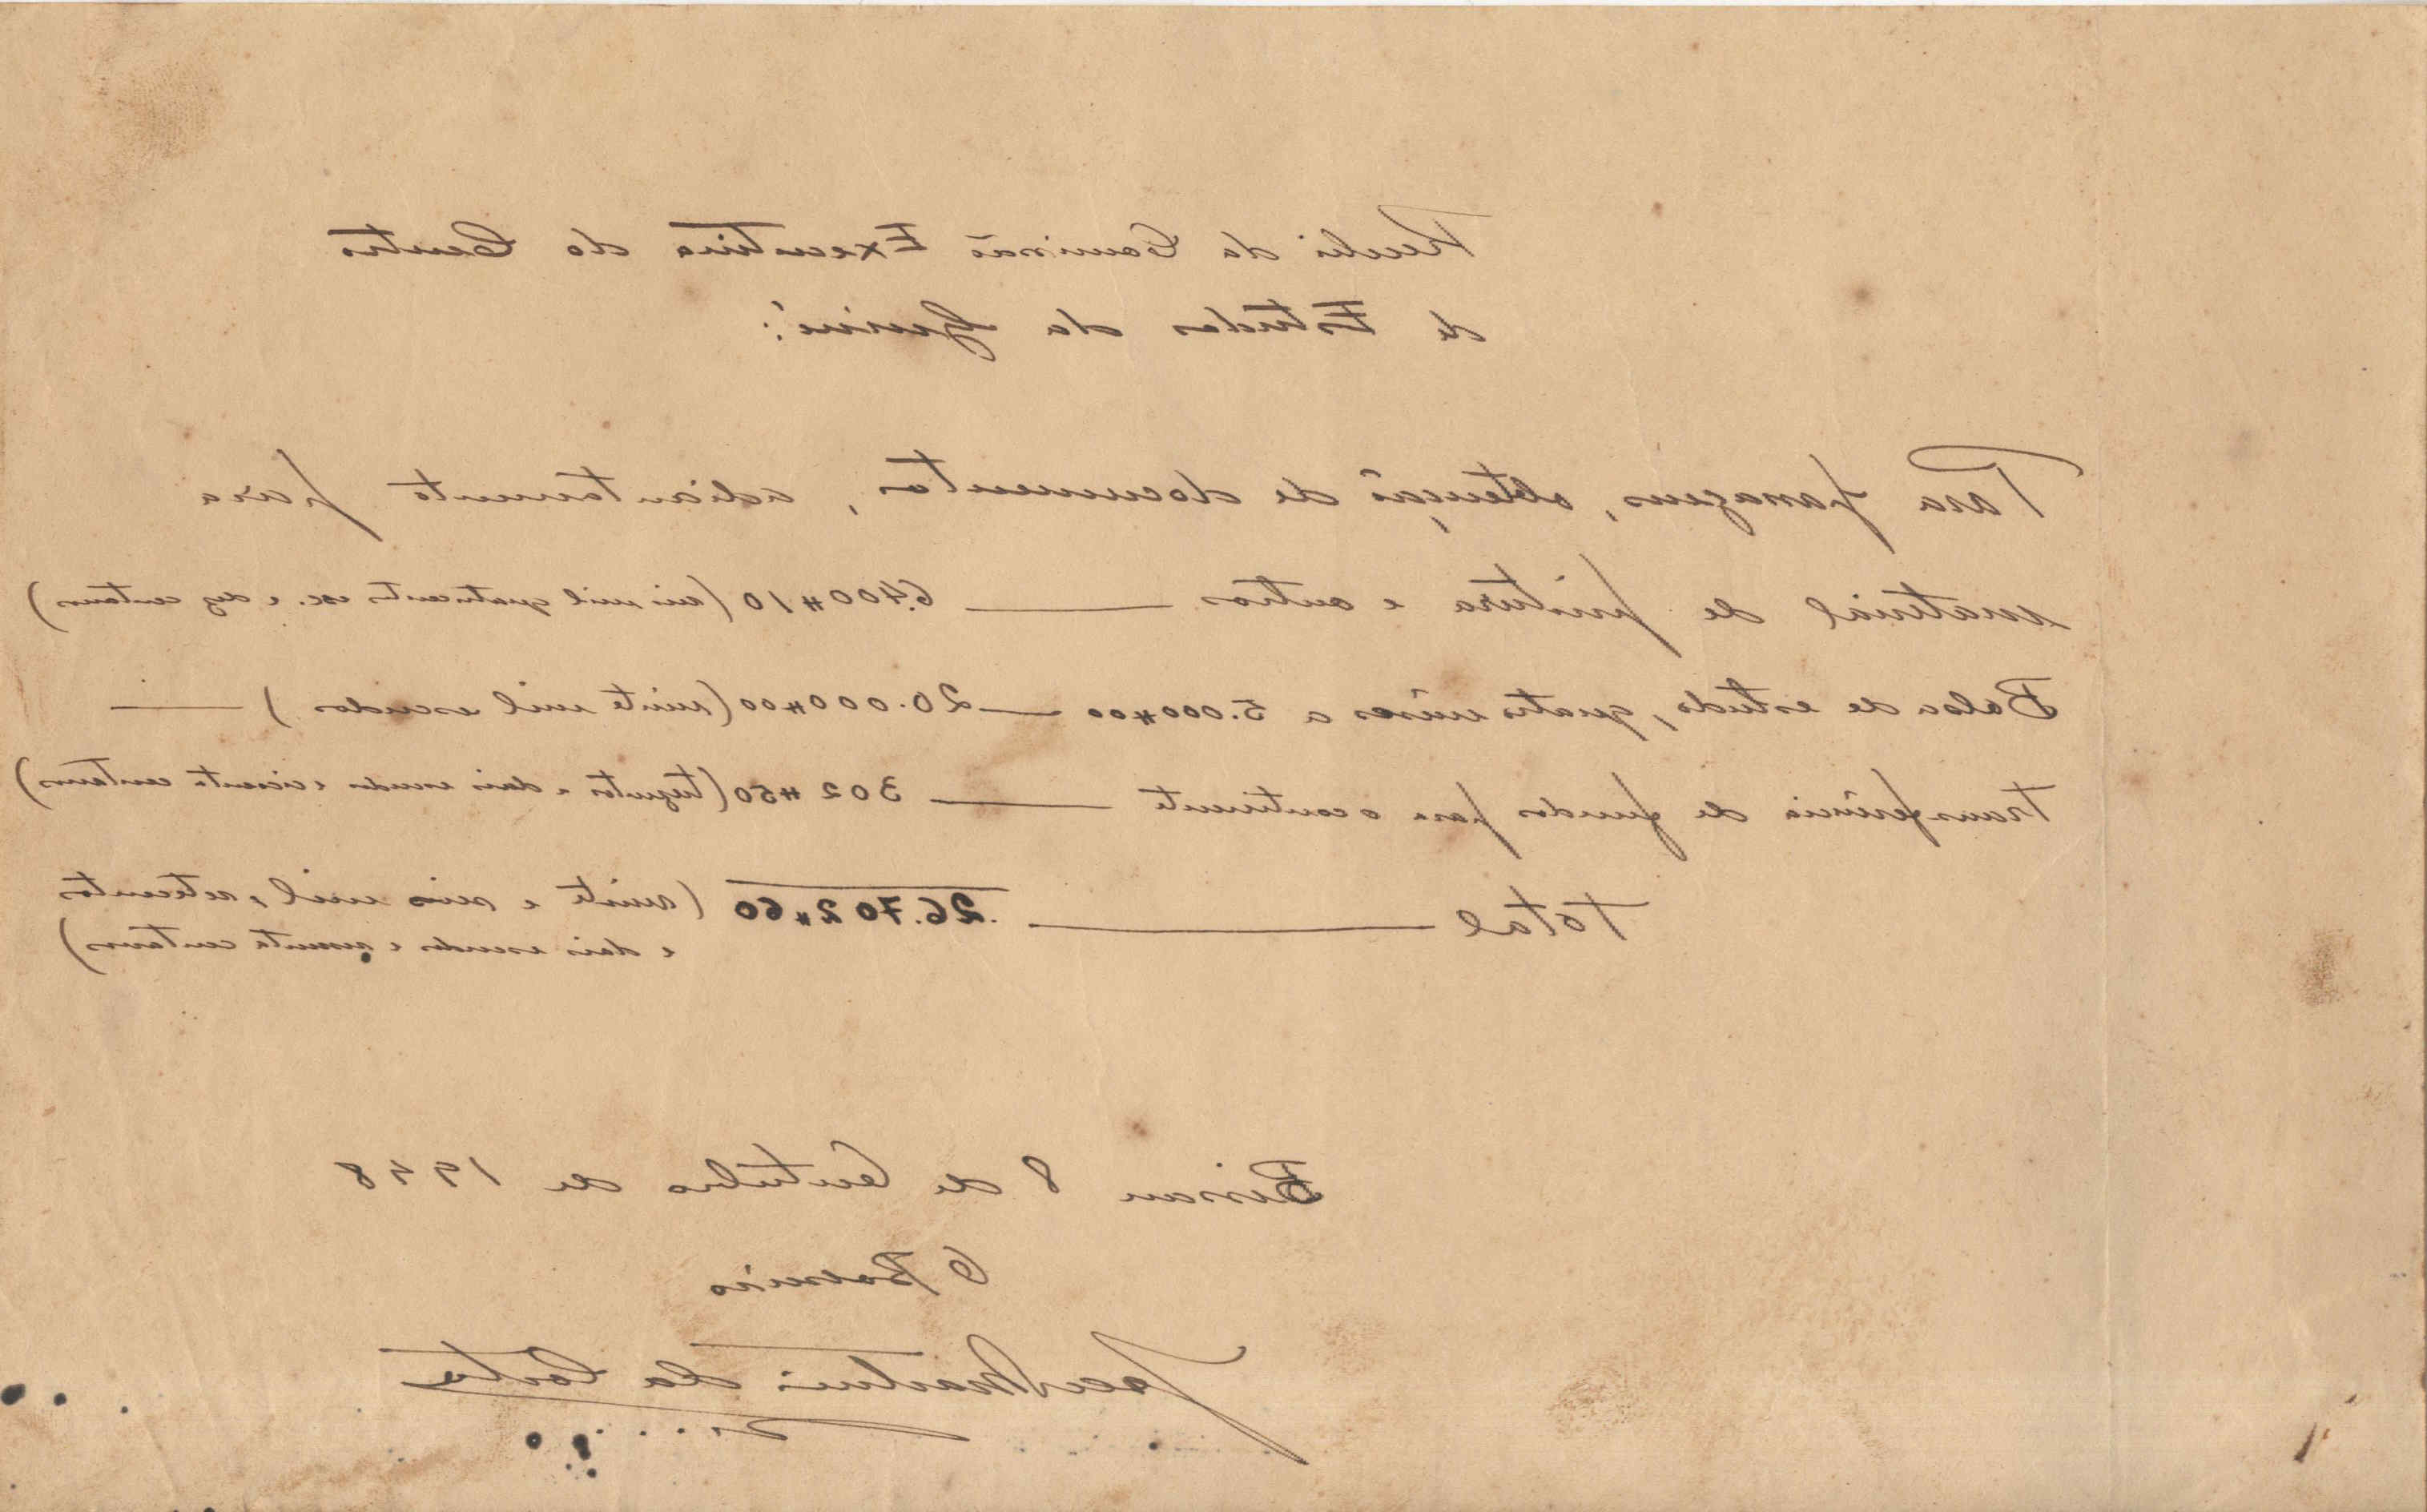 Recebi da Comissão Executiva do Centro
de Estudos da Guiné:
Para passagens, obtenção de documentos, adiantamento para
material de pintura e outros — 6.400$10 (seis mil quatrocentos esc. e dez centavos)
Bolsa de estudo, quatro meses a 5.000$00 — 20.000$00 (vinte mil escudos) —
Transferência de fundos para o continente — 302$50 (trezentos e dois escudos e cincoenta centavos)
Total — 26.702$60 (vinte e seis mil, setecentos
e dois escudos e sessenta centavos)
Bissau 8 de Outubro de 1948
O Bolseiro
José Martins da Costa